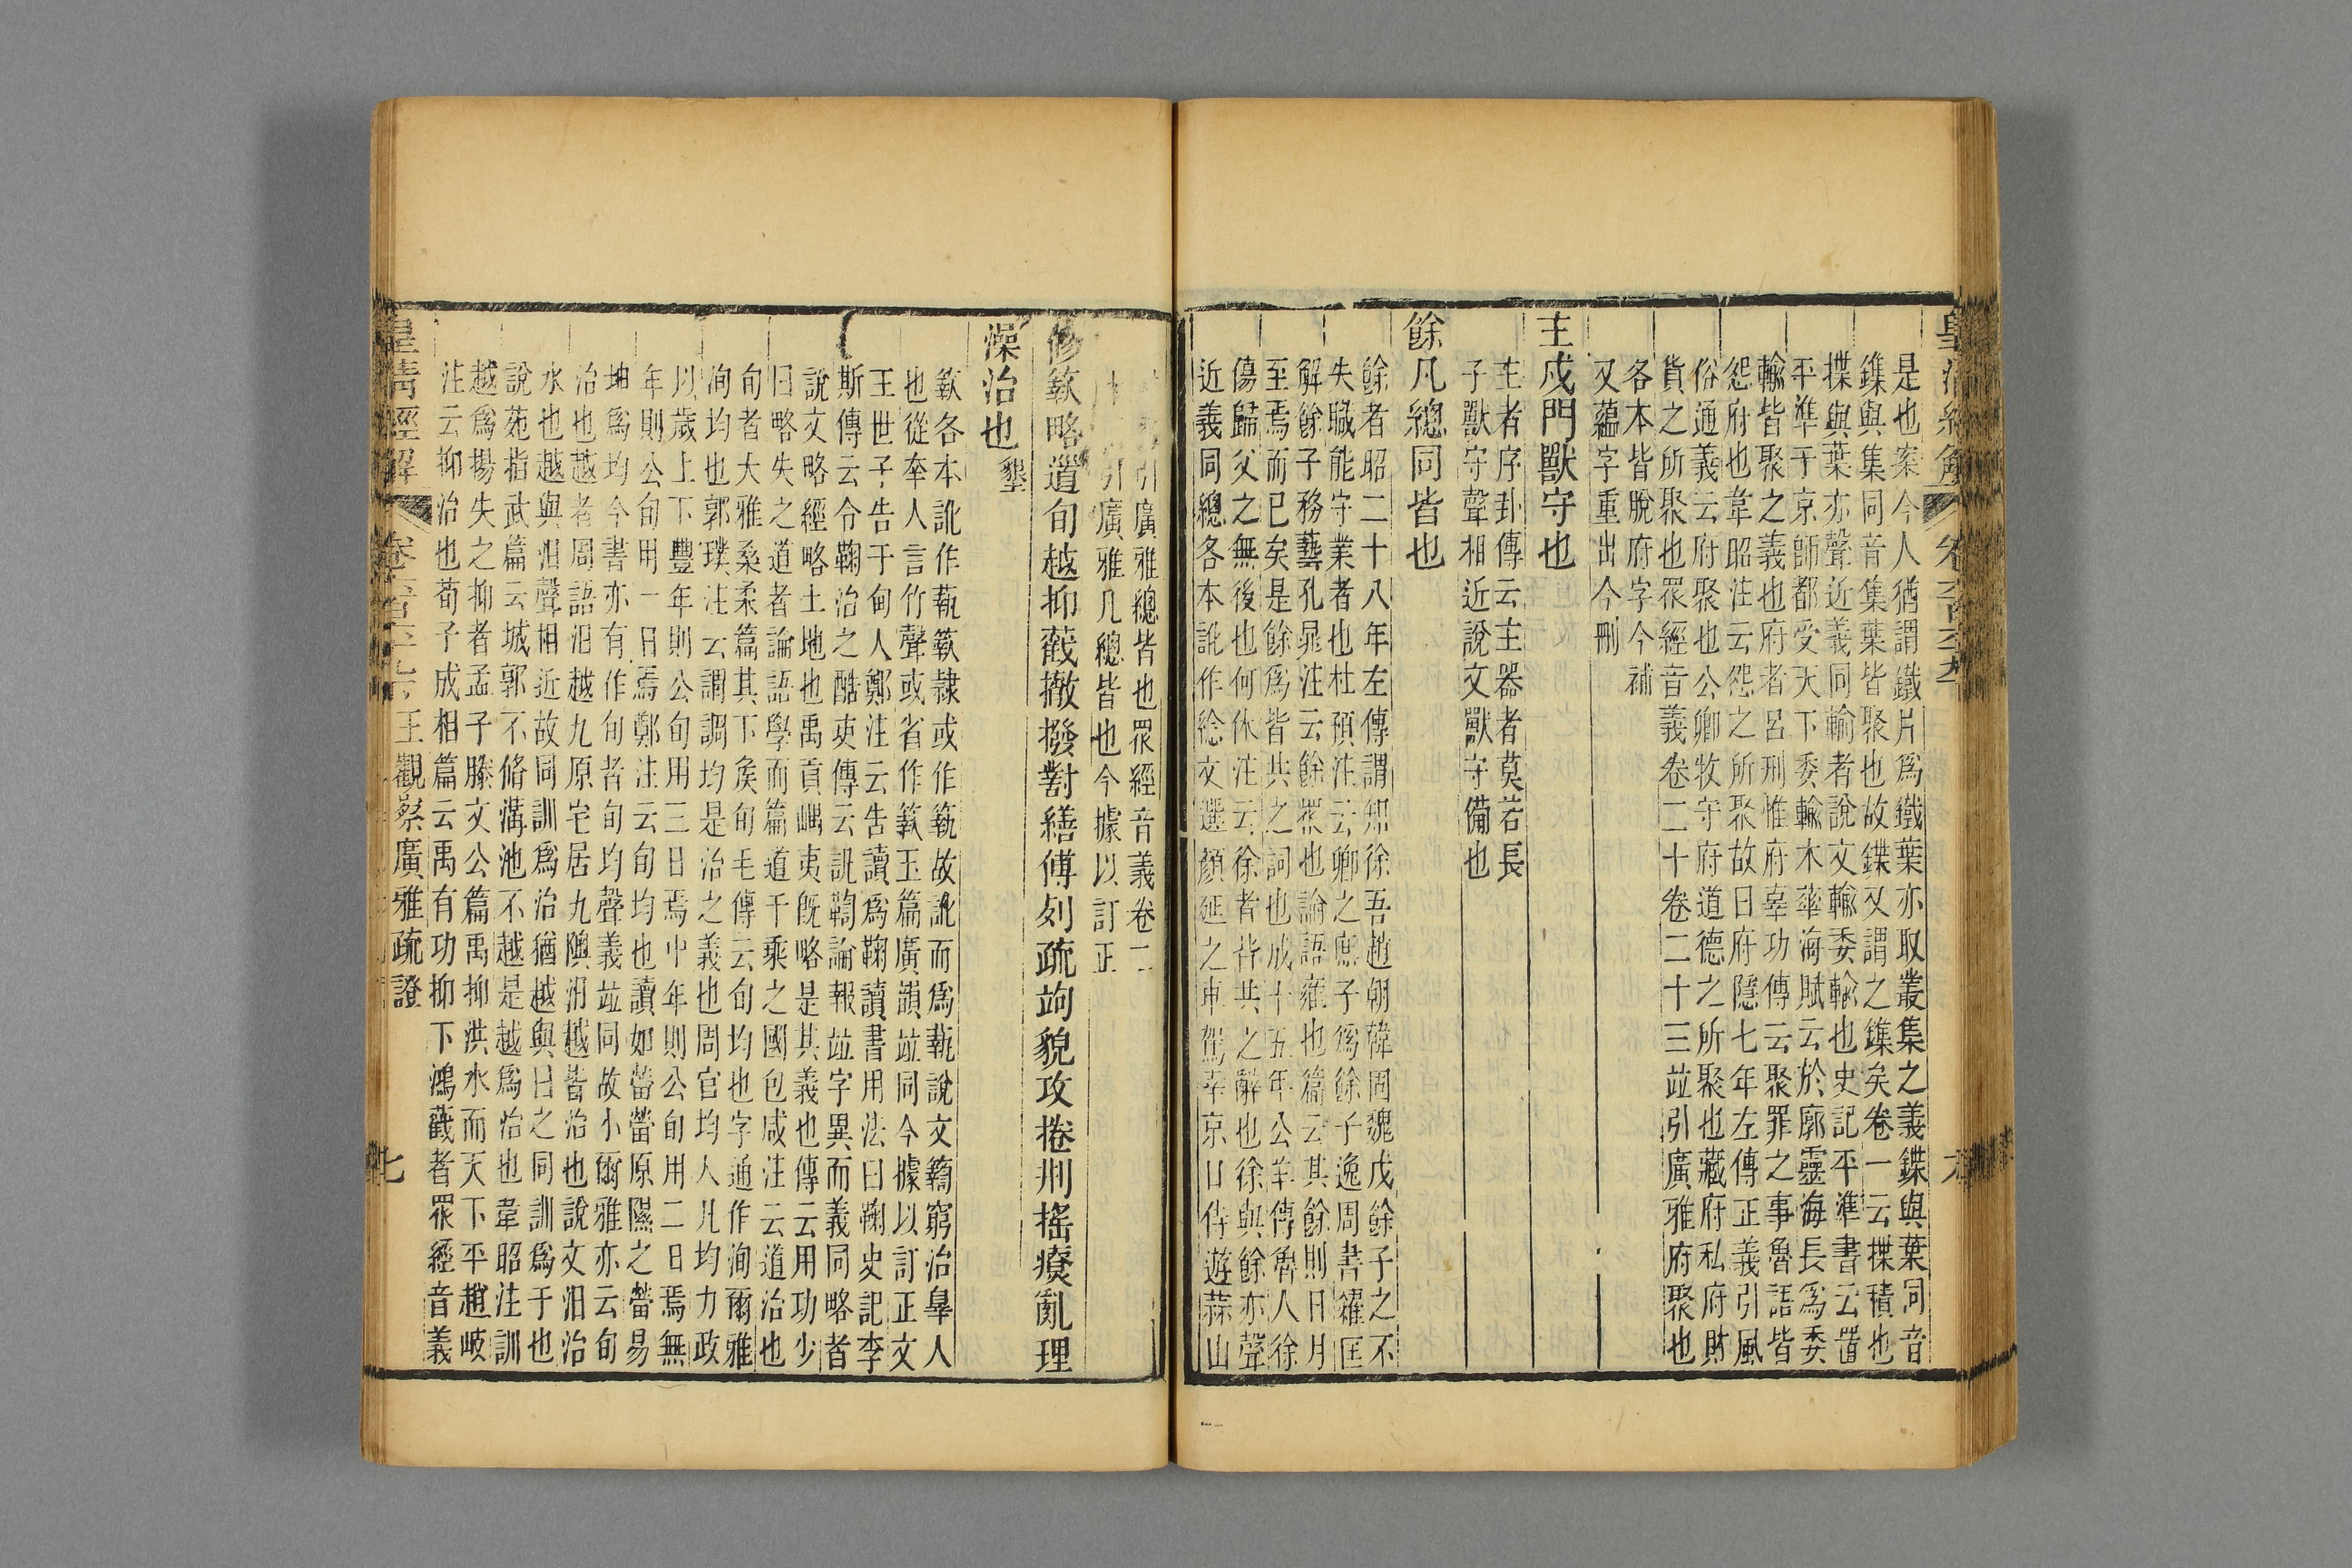 是也案今人猶謂鐵片爲鐵葉亦取叢集之義鍱與葉同音
鏶與集同音集葉皆聚也故鍱又謂之鏶矣卷一云揲積也
揲與葉亦聲近義同輸者說文輸委輸也史記平準書云置
平準于京師都受天下委輸木華海賦云於廓靈海長爲委
輸皆聚之義也府者呂刑惟府辜功傳云聚罪之事魯語皆
怨府也韋昭注云怨之所聚故曰府隱七年左傳正義引風
俗通義云府聚也公卿牧守府道德之所聚也藏府私府財
貨之所聚也眾經音義卷二十卷二十三竝引廣雅府聚也
各本皆脫府字今補
又蘊字重出今刪
主戍門獸守也
主者序卦傳云主器者莫若長
子獸守聲相近說文獸守備也
餘凡總同皆也
餘者昭二十八年左傳謂知徐吾趙朝韓固魏戊餘子之不
失職能守業者也杜預注云卿之庶子爲餘子逸周書糴匡
解餘子務藝孔晁注云餘眾也論語雍也篇云其餘則日月
至焉而已矣是餘爲皆共之詞也成十五年公羊傳魯人徐
傷歸父之無後也何休注云徐者皆共之辭也徐與餘亦聲
近義同總各本訛作総文選顏延之車駕幸京口侍遊蒜山
引廣雅總皆也眾經音義卷二
引廣雅凡總皆也今據以訂正
修䉤略道旬越抑㪿撤撥對繕傅刻疏竘貌攻捲刑搖㾼亂理
澡治也墾
䉤各本訛作蓻䉤隸或作䉤故訛而爲蓻說文籟窮治辠人
也從㚔人言竹聲或省作䉤玉篇廣韻竝同今據以訂正文
王世子告于甸人鄭注云告讀爲鞫讀書用法曰鞫史記李
斯傳云令鞫治之酷吏傳云訊鞫論報竝字異而義同略者
說文略經略土地也禹貢嵎夷既略是其義也傳云用功少
曰略失之道者論語學而篇道千乘之國包咸注云道治也
旬者大雅桑柔篇其下矦旬毛傳云旬均也字通作洵爾雅
洵均也郭璞注云謂調均是治之義也周官均人凡均力政
以歲上下豐年則公旬用三日焉中年則公旬用二日焉無
年則公旬用一日焉鄭注云旬均也讀如䈁䈁原隰之䈁易
坤爲均今書亦有作旬者旬均聲義竝同故小爾雅亦云旬
治也越者周語汨越九原宅居九隩汨越皆治也說文汨治
水也越與汨聲相近故同訓爲治猶越與曰之同訓爲于也
說苑指武篇云城郭不脩溝池不越是越爲治也韋昭注訓
越爲揚失之抑者孟子滕文公篇禹抑洪水而天下平趙岐
注云抑治也荀子成相篇云禹有功抑下鴻㪿者眾經音義
皇清經解 王觀察廣雅疏證 七